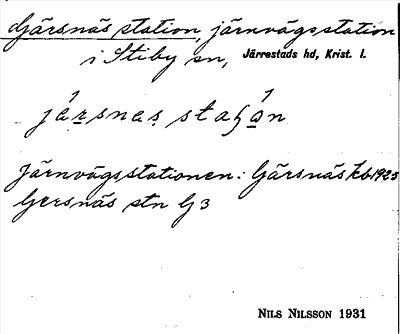 Gärsnäs station, järnvägsstation
i Stiby sn, Järrestads hd, Krist. l.
Järnvägsstationen: Gärsnäs kb 1925
Gersnäs stn G 3
NILS NILSSON 1931